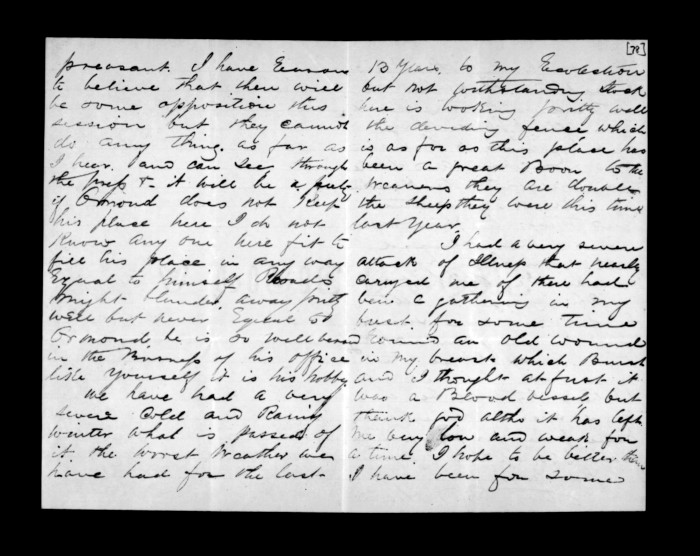 [72]
preasant. I have Eearson
to believe that there will
be some opposition this
session but they cannot
do any thing. as far as
I hear. and can see through
the press & it will be a
if Ormond does not Keep
his place here I do not
Know any one here fit to
fill his place in any way
Equal to himself
might blunder away pritty
well but never Equal to
Ormond, he is so well
in the of his office
like yourself it is his hobby
We have had a very
severe Cold and Rainy
winter what is passed of
it. the worst Weather we
have had for the last
13 Years. to my Ecolection
but not withstanding Stock
here is looking pritty well
the deviding fence which
is as far as this place has
been a great Boon to the
they are double
the Sheep they were this time
last Year.
I had a very severe
attack of Illness that nearly
carryed me of there had
been a gathering in my
for some time
an old wound
in my breast which Burst
and I thought at furst it
was a Blood vessel but
thank god altho it has left
me very low and weak for
a time. I hope to be better then
I have been for some